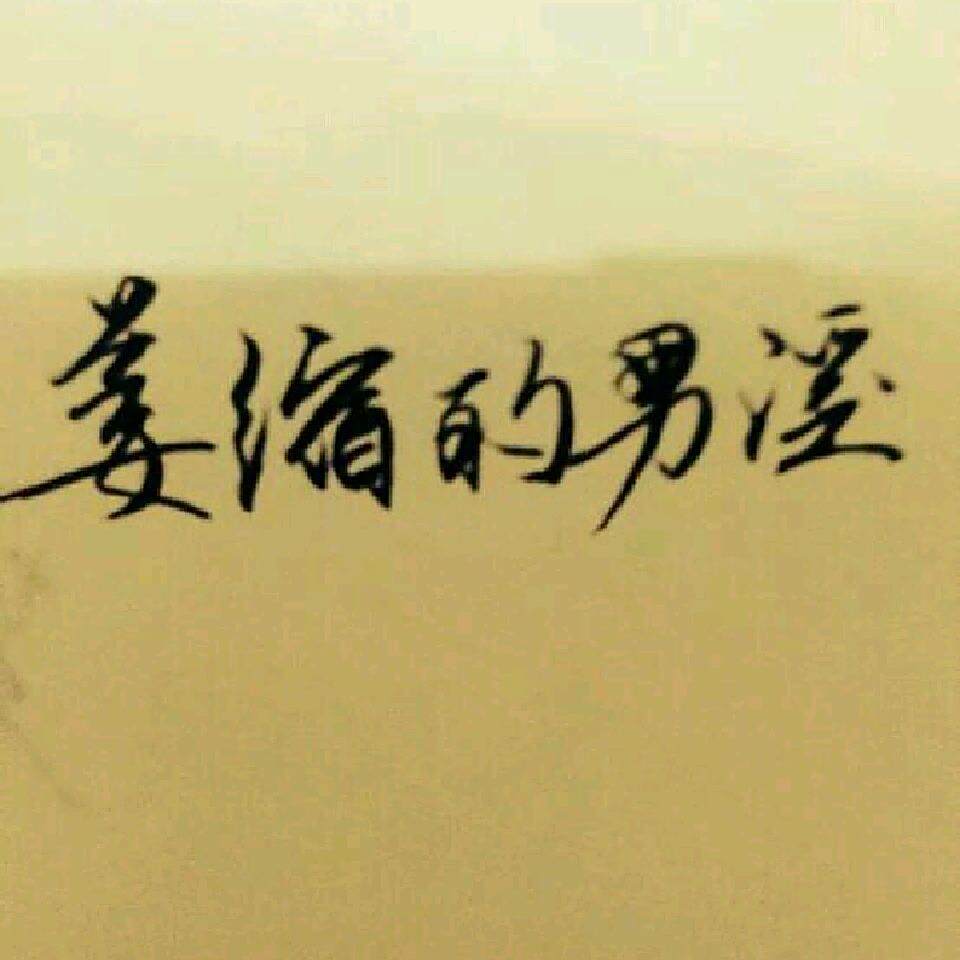 萎缩的男淫